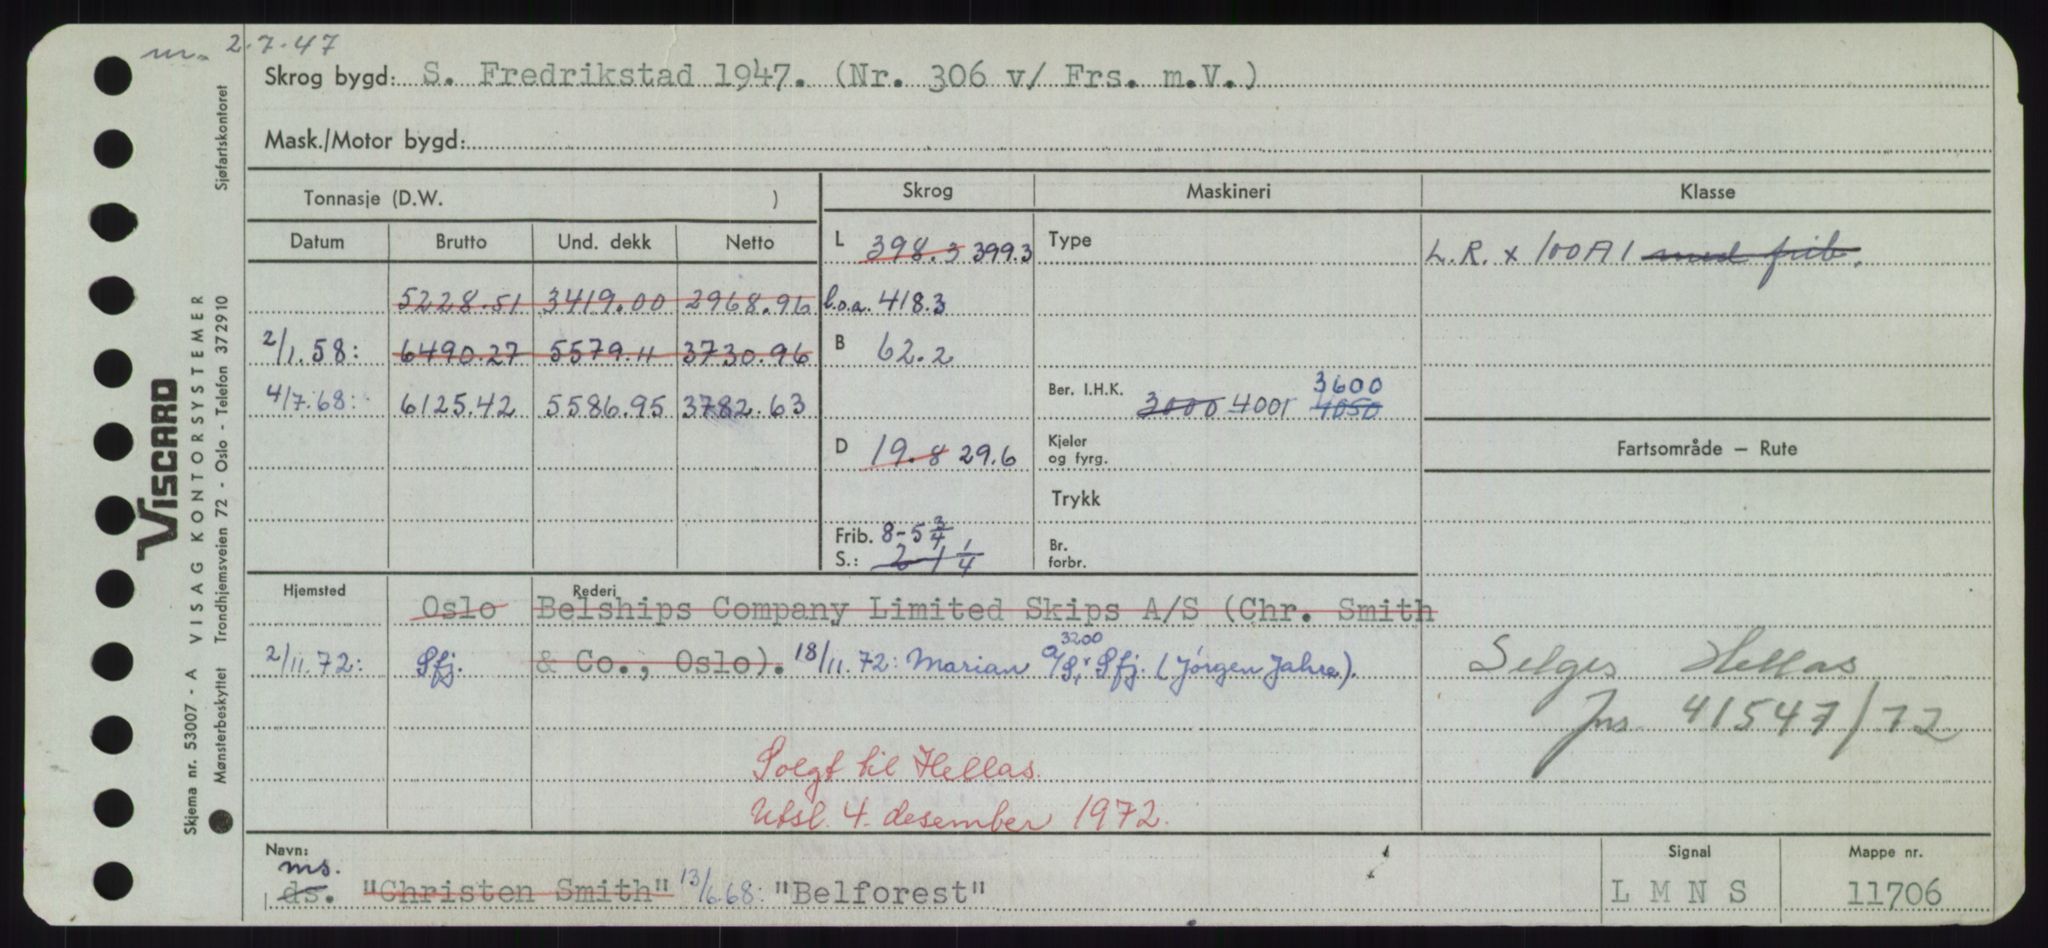 m. 2.7.47
Skrog bygd: S. Fredrikstad 1947. (Nr. 306 v/ Frs. m.V.)
Mask./Motor bygd:
Tonnasje (D.W. )
Skrog
Maskineri
Klasse
Datum Brutto Und. dekk Netto
L 398.3 399.3
Type
L.R. x 100A1 med frib.
5228.51 3419.00 2968.96
l.o.a. 418.3
2/1.58: 6490.27 5579.11 3730.96
B 62.2
4/7.68: 6125.42 5586.95 3782.63
Ber. I.H.K. 3000 4001 4050 3600
D 19.8 29.6
Kjeler og fyrg.
Fartsområde – Rute
Trykk
Frib. 8-5 3/4
S.: 2-1 1/4
Br. forbr.
Hjemsted
Rederi
Oslo Belships Company Limited Skips A/S (Chr. Smith
2/11.72: Sfj. & Co., Oslo). 18/11.72: Marian A/S, 3200 Sfj. (Jørgen Jahre).
Selges Hellas
Jns. 41547/72
Solgt til Hellas.
Utsl. 4. desember 1972.
Navn:
ms.
ds. "Christen Smith" 13/6.68: "Belforest"
Signal
L M N S
Mappe nr.
11706
VISCARD
Skjema nr. 53007 - A VISAG KONTORSYSTEMER
Mønsterbeskyttet Trondhjemsveien 72 - Oslo - Telefon 372910 Sjøfartskontoret